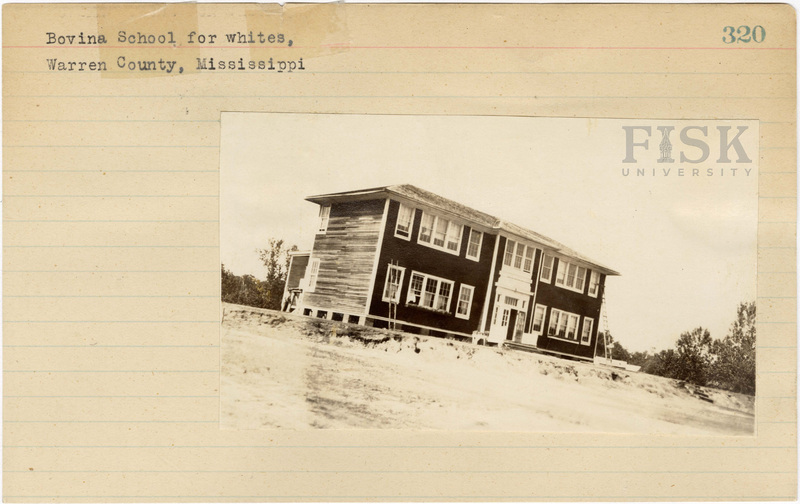 Bovina School for whites,
320
Warren County, Mississippi
FISK
UNIVERSITY